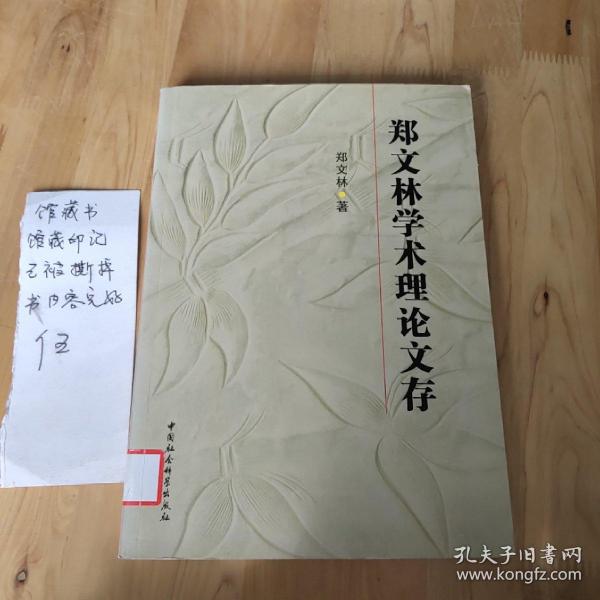 馆藏书
馆藏印记
已被撕掉
书内容完好
伍
郑文林学术理论文存
郑文林·著
中国社会科学出版社
孔夫子旧书网
www.kongfz.com